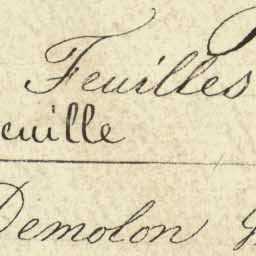 Feuilles
euille
Demolon